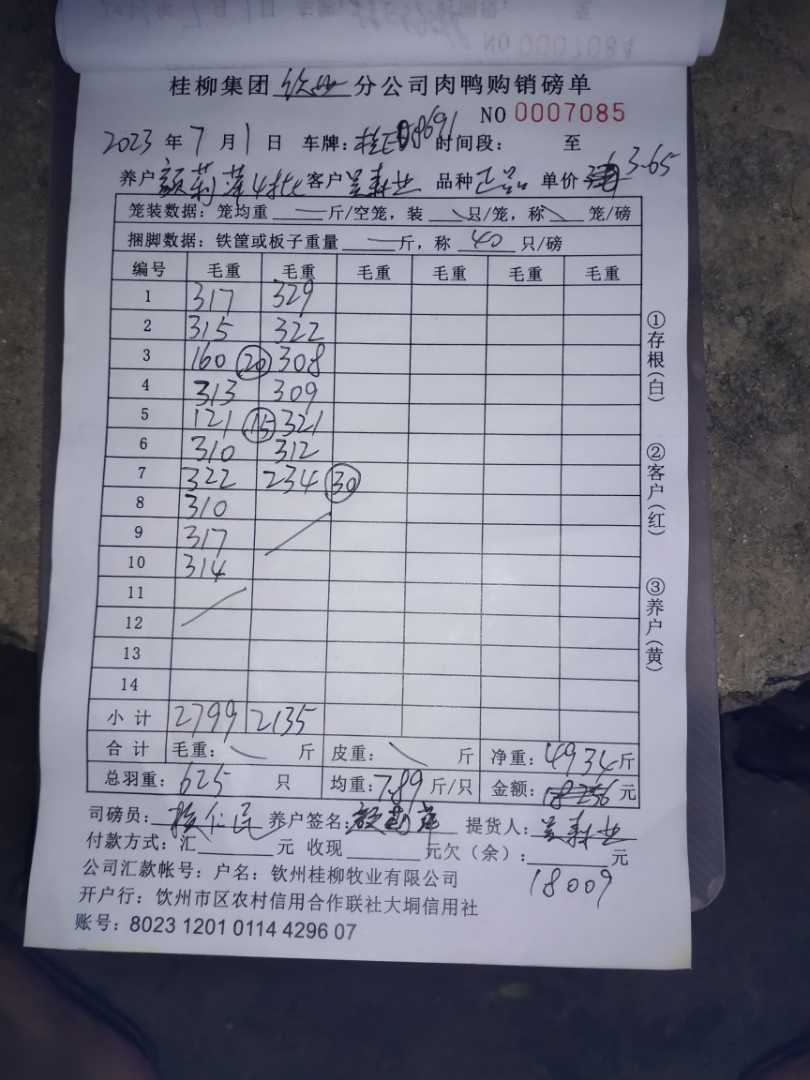 NO 0007084
桂柳集团 钦州 分公司肉鸭购销磅单
NO 0007085
2023 年 7 月 1 日 车牌: 8691 时间段: 至
养户 颜莉萍4批 客户 品种 正品 单价 3.65
笼装数据: 笼均重 斤/空笼, 装 只/笼, 称 笼/磅
捆脚数据: 铁筐或板子重量 斤, 称 40 只/磅
编号 毛重 毛重 毛重 毛重 毛重 毛重
1 317 329
2 315 322
3 160 20 308
4 313 309
5 121 15 321
6 310 312
7 322 234 30
8 310
9 317
10 314
11
12
13
14
小计 2799 2135
合计 毛重: 斤 皮重: 斤 净重: 4934 斤
总羽重: 625 只 均重: 7.89 斤/只 金额: 18256 元
司磅员: 养户签名: 颜莉萍 提货人:
付款方式: 汇 元 收现 元欠(余): 元
18009
公司汇款帐号: 户名: 钦州桂柳牧业有限公司
开户行: 饮州市区农村信用合作联社大垌信用社
账号: 8023 1201 0114 4296 07
①存根(白)
②客户(红)
③养户(黄)